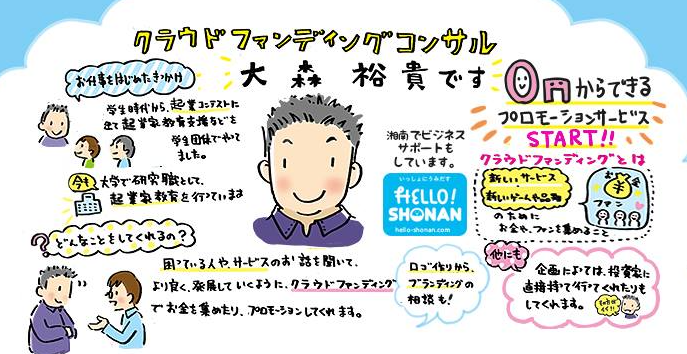 クラウドファンディングコンサル
大森裕貴です
お仕事をはじめたきっかけ
学生時代から、起業コンテストに
出て起業家教育支援などを
学生団体でやって
ました。
今も
大学で研究職として、
起業家教育を行っています
どんなことをしてくれるの？
困っている人やサービスのお話を聞いて、
より良く、発展していくように、クラウドファンディング
でお金を集めたり、プロモーションしてくれます。
湘南でビジネス
サポートも
しています。
いっしょにうみだす
HELLO!
SHONAN
hello-shonan.com
ロゴ作りから、
ブランディングの
相談も！
0円からできる
プロモーションサービス
START!!
クラウドファンディングとは
新しいサービス
新しいゲームや品物
のために
お金や、ファンを集めること
お金
¥
ファン
他にも
企画によっては、投資家に
直接持って行ってくれたりも
してくれます。